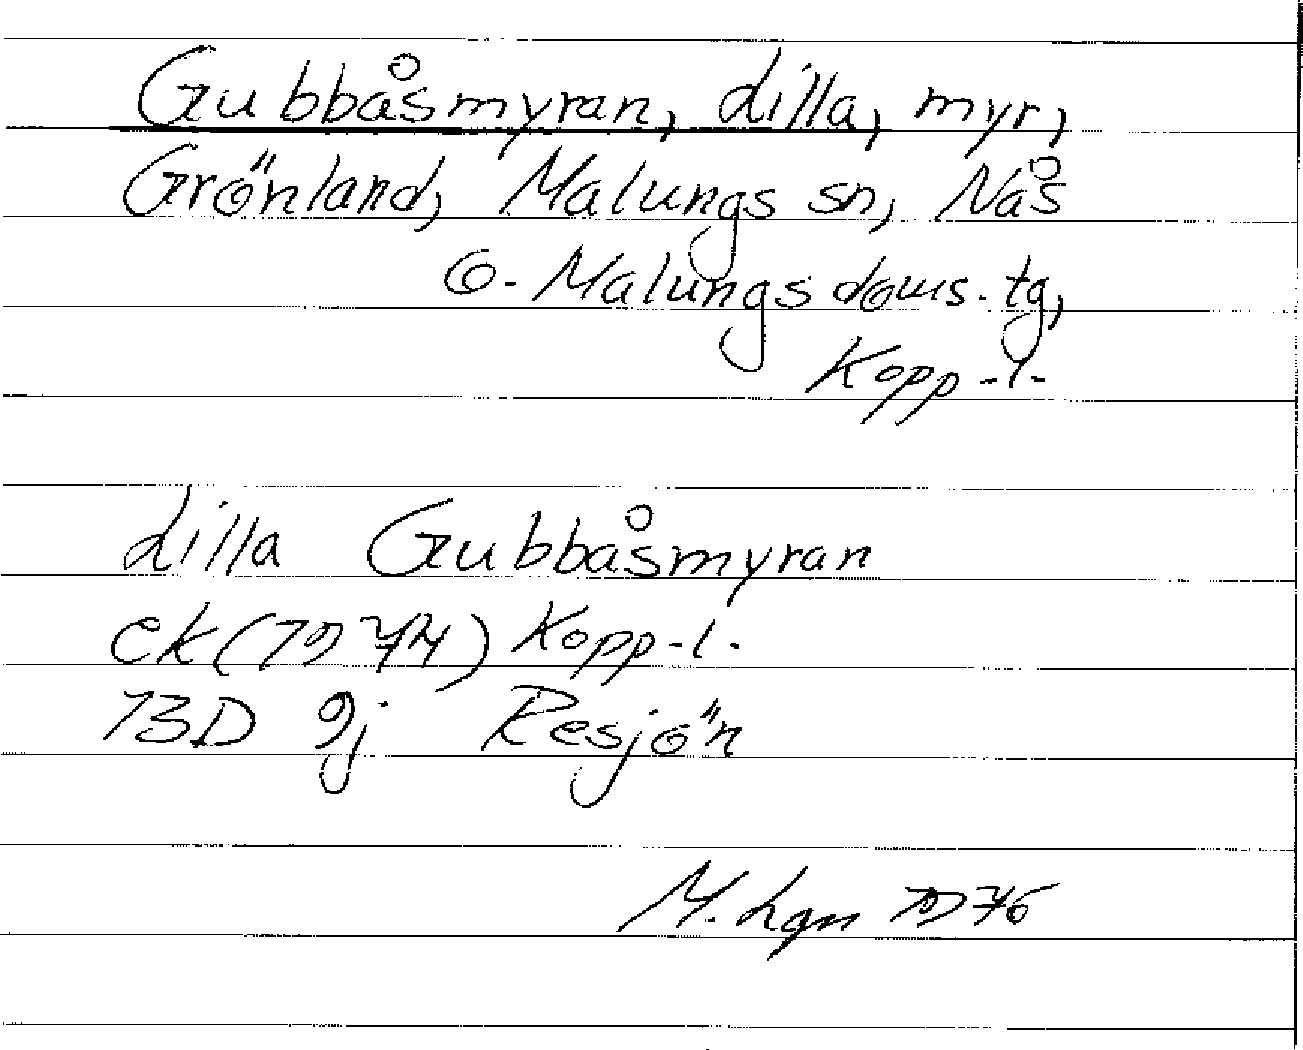 Gubbåsmyran, Lilla, myr,
Grönland, Malungs sn, Nås
o. Malungs doms. tg,
Kopp-l-
Lilla Gubbåsmyran
ek (1974) Kopp-l.
13D 9j Resjön
M. Lgn 1976